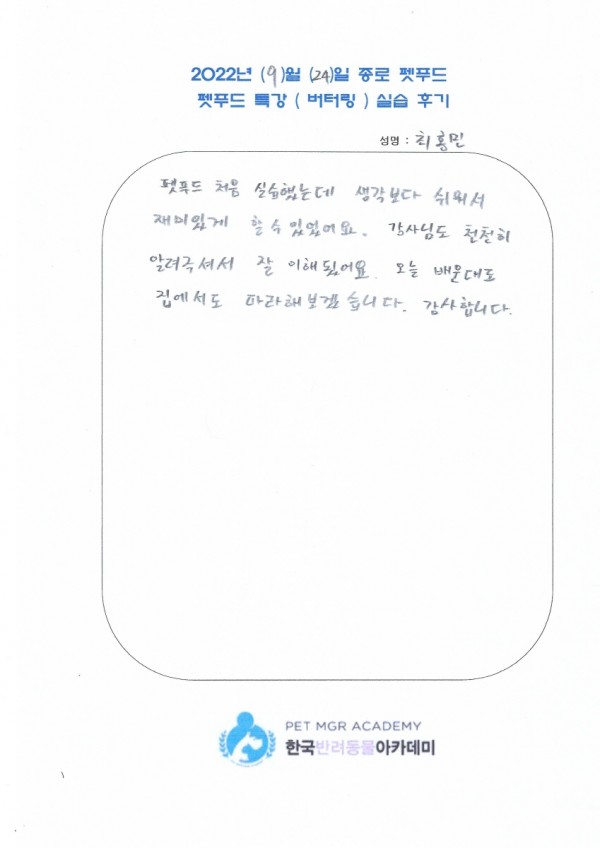 2022년 (9)월 (24)일 종로 펫푸드
펫푸드 특강 ( 버터링 ) 실습 후기
성명 : 최홍민
펫푸드 처음 실습했는데 생각보다 쉬워서
재미있게 할 수 있었어요. 강사님도 천천히
알려주셔서 잘 이해됬어요. 오늘 배운대로
집에서도 따라해보겠습니다. 감사합니다.
PET MGR ACADEMY
한국반려동물아카데미